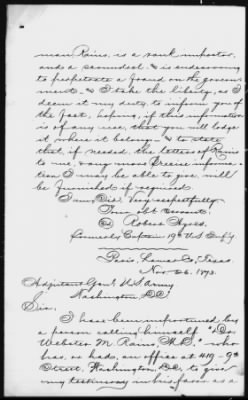 man Rains, is a rank impostor,
and a scoundrel & is endeavoring
to perpetrate a fraud on the govern
ment. & I take the liberty, as I
deem it my duty, to inform you of
the fact, hoping, if this information
is of any use, that you will lodge
it where it belongs & to state
that, if needed, the letters of Rains
to me, & any more precise informa
tion I may be able to give, will
be furnished if required.
I am, Sir, Very respectfully
Your obt servant.
Robert Ayres.
formerly Captain 19th U.S. Inf'y
Paris, Lamar Co, Texas.
Nov 26. 1873.
Adjutant Genl U.S. Army
Washington, D.C.
Sir,
I have been importuned by
a person calling himself "Dr.
Webster M. Rains M.D." who
has, or had, an office at 419-9th
Street, Washington, D.C., to give
my testimony in his favor as a